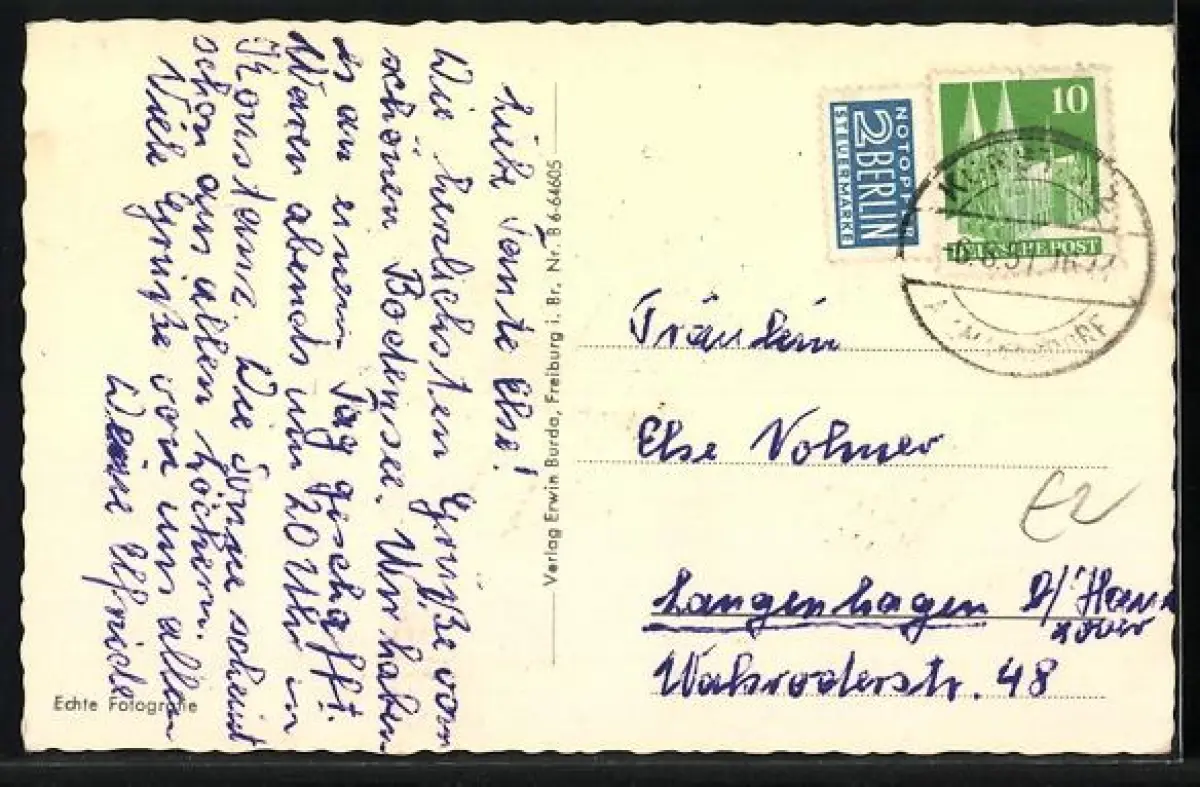 Liebe Tante Else!
Die herzlichsten Grüße vom
schönen Bodensee. Wir haben
es an einem Tag geschafft.
Waren abends um 20 Uhr in
Konstanz. Die Sonne scheint
schon aus allen Löchern.
Viele Grüße von uns allen
Deine Ulfriede
Echte Fotografie
Verlag Erwin Burda, Freiburg i. Br. Nr. B 6-64605
NOTOPFER
2 BERLIN
STEUERMARKE
10
DEUTSCHE POST
6.8.51
Fräulein
Else Volmer
Langenhagen b/ Han
nover
Walsroderstr. 48